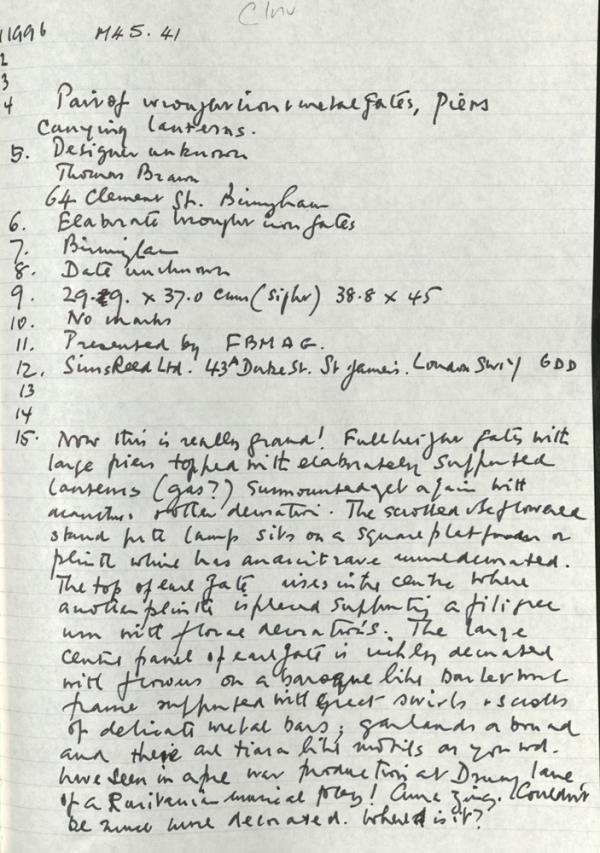 1996 M45.41
2
3
4 Pair of wrought iron & metal gates, piers
carrying lanterns.
5. Designer unknown
Thomas Brawn
64 Clement St. Birmingham
6. Elaborate wrought iron gates
7. Birmingham
8. Date unknown
9. 29.9. x 37.0 cms (sight) 38.8 x 45
10. No marks
11. Presented by FBMAG.
12. Sims Reed Ltd. 43A Duke St. St James's. London SW1Y 6DD
13
14
15. Now this is really grand! Full height gates with
large piers topped with elaborately supported
lanterns (gas?) surmounted yet again with
acanthus & other decoration. The scrolled & flowered
stand for the lamp sits on a square platform or
plinth which has an architrave undecorated.
The top of each gate rises in the centre where
another plinth is placed supporting a filigree
urn with floral decorations. The large
centre panel of each gate is richly decorated
with flowers on a baroque like
frame supported with great swirls & scrolls
of delicate metal bars; garlands abound
and there are tiara like motifs as you wd.
have seen in a pre war production at Drury Lane
of a Ruritanian musical play! Amazing. Couldn't
be much more decorated. Where is it?